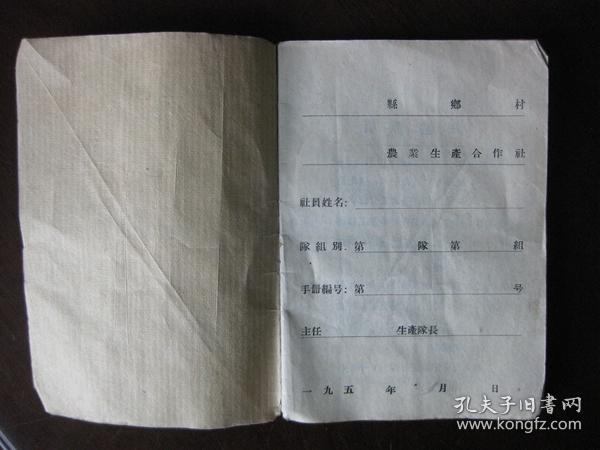 縣 鄉 村
農業生產合作社
社員姓名:
隊組別. 第 隊 第 組
手冊編号: 第 号
主任 生產隊長
一九五 年 月 日
孔夫子旧書网
www.kongfz.com